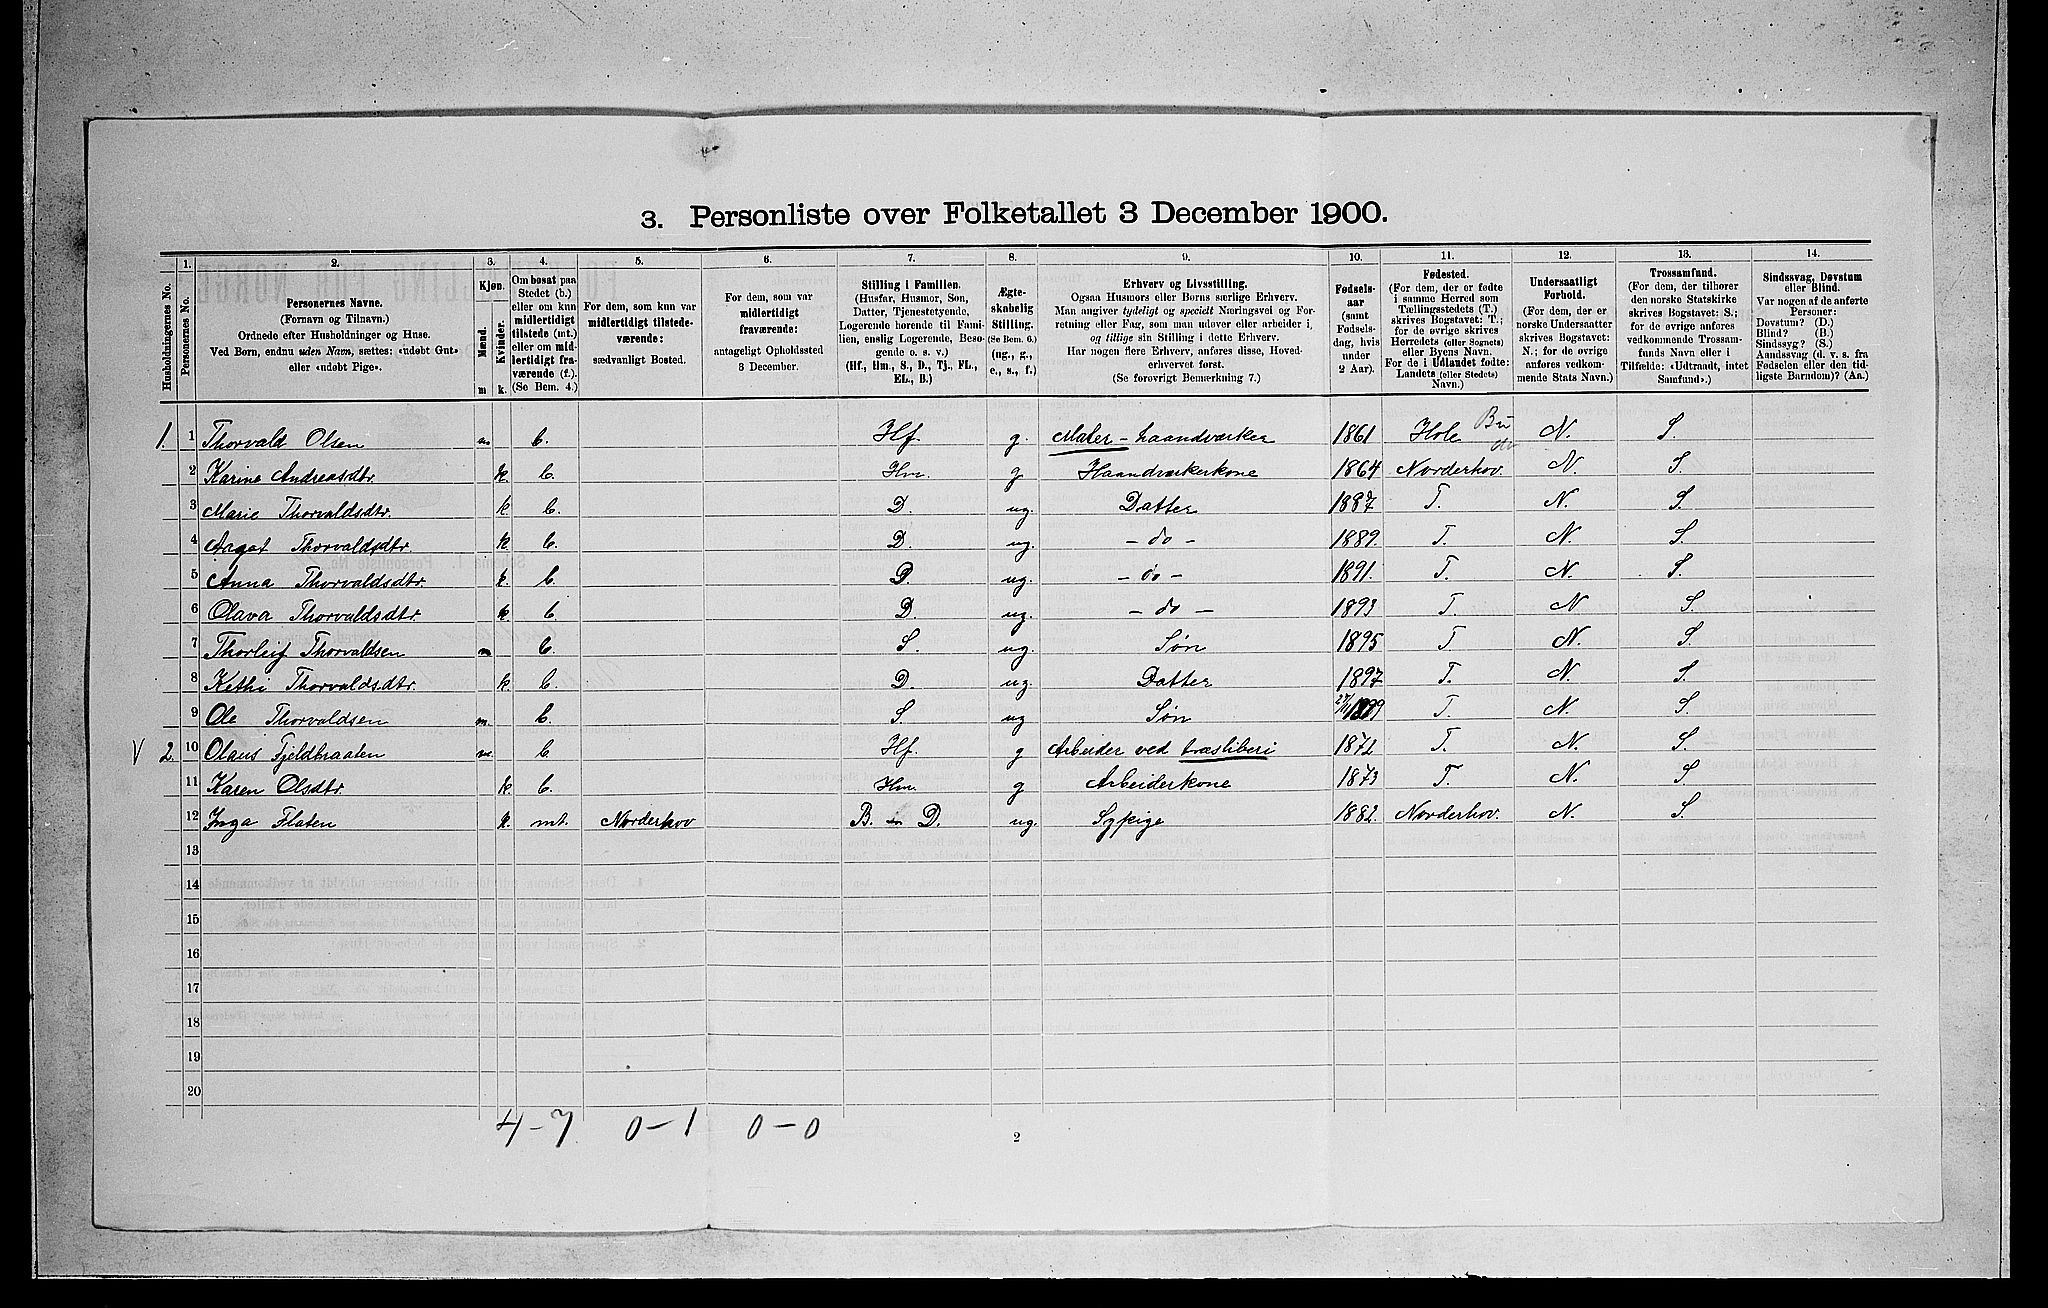 3. Personliste over Folketallet 3 December 1900.
1. 2. 3. 4. 5. 6. 7. 8. 9. 10. 11. 12. 13. 14.
Husholdningernes No.
Personernes No.
Personernes Navne.
(Fornavn og Tilnavn.)
Ordnede efter Husholdninger og Huse.
Ved Børn, endnu uden Navn, sættes: «udøbt Gut»
eller «udøbt Pige».
Kjøn.
Mænd.
Kvinder.
m k.
Om bosat paa
Stedet (b.)
eller om kun
midlertidigt
tilstede (mt.)
eller om mid-
lertidigt fra-
værende (f.).
(Se Bem. 4.)
For dem, som kun var
midlertidigt tilstede-
værende:
sædvanligt Bosted.
For dem, som var
midlertidigt
fraværende:
antageligt Opholdssted
3 December.
Stilling i Familien.
(Husfar, Husmor, Søn,
Datter, Tjenestetyende,
Logerende hørende til Fami-
lien, enslig Logerende, Besø-
gende o. s. v.)
(Hf., Hm., S., D., Tj., FL.,
EL., B.)
Ægte-
skabelig
Stilling.
(Se Bem. 6.)
(ug., g.,
e., s., f.)
Erhverv og Livsstilling.
Ogsaa Husmors eller Børns særlige Erhverv.
Man angiver tydeligt og specielt Næringsvei og For-
retning eller Fag, som man udøver eller arbeider i,
og tillige sin Stilling i dette Erhverv.
Har nogen flere Erhverv, anføres disse, Hoved-
erhvervet først.
(Se forøvrigt Bemærkning 7.)
Fødsels-
aar
(samt
Fødsels-
dag, hvis
under
2 Aar).
Fødested.
(For dem, der er fødte
i samme Herred som
Tællingsstedets (T.)
skrives Bogstavet: T.;
for de øvrige skrives
Herredets (eller Sognets)
eller Byens Navn.
For de i Udlandet fødte:
Landets (eller Stedets)
Navn.)
Undersaatligt
Forhold.
(For dem, der er
norske Undersaatter
skrives Bogstavet:
N.; for de øvrige
anføres vedkom-
mende Stats Navn.)
Trossamfund.
(For dem, der tilhører
den norske Statskirke
skrives Bogstavet: S.;
for de øvrige anføres
vedkommende Trossam-
funds Navn eller i
Tilfælde: «Udtraadt, intet
Samfund».)
Sindssvag, Døvstum
eller Blind.
Var nogen af de anførte
Personer:
Døvstum? (D.)
Blind? (B.)
Sindssyg? (S.)
Aandssvag (d. v. s. fra
Fødselen eller den tid-
ligste Barndom)? (Aa.)
1. 1 Thorvald Olsen m b. Hf. g. Maler - haandværker 1861 Hole Bu N. S.
2 Karine Andreasdtr. k. b. Hm. g Haandværkerkone 1864 Norderhov. N. S.
3 Marie Thorvaldsdtr. k. b. D. ug. Datter 1887 T. N. S.
4 Aagot Thorvaldsdtr. k b. D. ug. - do - 1889. T. N. S.
5 Anna Thorvaldsdtr. k. b. D. ug. - do - 1891. T. N. S.
6 Olava Thorvaldsdtr. k b. D. ug. - do - 1893 T. N S.
7 Thorleif Thorvaldsen m b. S. ug. Søn 1895 T N. S.
8 Kethi Thorvaldsdtr. k b. D. ug. Datter 1897 T. N. S.
9 Ole Thorvaldsen m. b. S. ug Søn 1899 T. N. S.
V 2. 10 Olaus Fjeldbraaten m. b. Hf. g Arbeider ved træsliberi 1872 T. N. S.
11 Karen Olsdtr. k. b. Hm. g Arbeiderkone 1873 T. N. S
12 Inga Flaten k. mt. Norderhov B. D. ug. Sypige 1882. Norderhov. N. S.
13
14
15
16
17
18
19
20
4-7 0-1 0-0
2